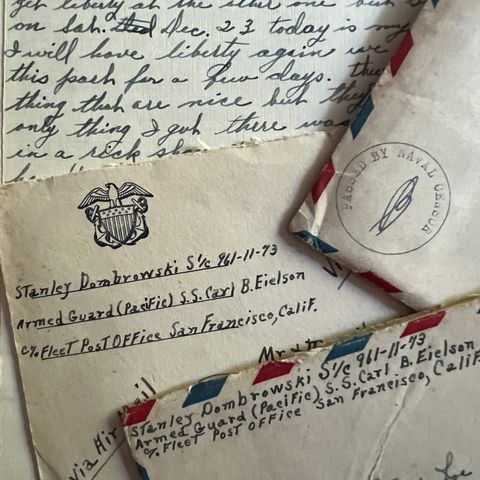 get liberty at the other one but
on Sat. Dec. 23 today is my
I will have liberty again we
this port for a few days.
thing that are nice but they
only thing I got there was
in a rick sha
PASSED BY NAVAL CENSOR
Stanley Dombrowski S1/c 961-11-73
Armed Guard (Pacific) S.S. Carl B. Eielson
c/o Fleet Post Office San Francisco, Calif.
Via Air Mail
Stanley Dombrowski S1/c 961-11-73
Armed Guard (Pacific) S.S. Carl B. Eielson
c/o Fleet Post Office San Francisco, Calif